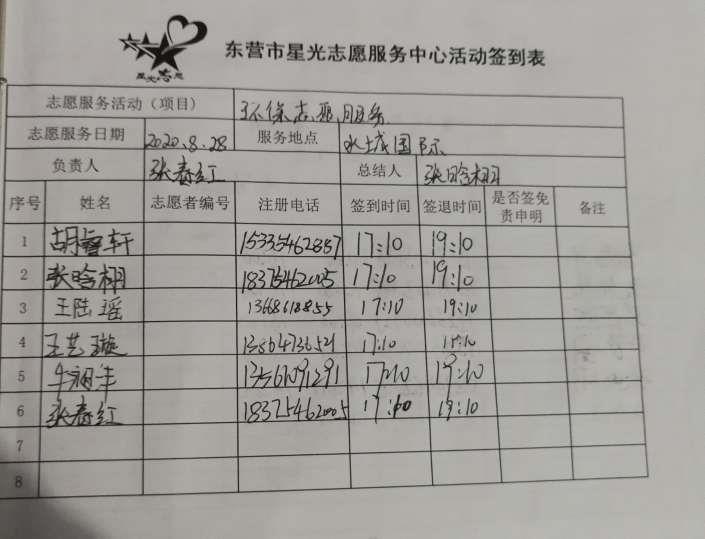 星光志愿
东营市星光志愿服务中心活动签到表
志愿服务活动（项目） 环保志愿服务
志愿服务日期 2020.8.28 服务地点 水城国际
负责人 张春红 总结人 张晗栩
序号 姓名 志愿者编号 注册电话 签到时间 签退时间 是否签免责申明 备注
1 胡睿轩 15335462887 17:10 19:10
2 张晗栩 18375462005 17:10 19:10
3 王陆瑶 13668618855 17:10 19:10
4 王艺璇 13864736521 17:10 19:10
5 13561091291 17:10 19:10
6 张春红 18375462005 17:10 19:10
7
8